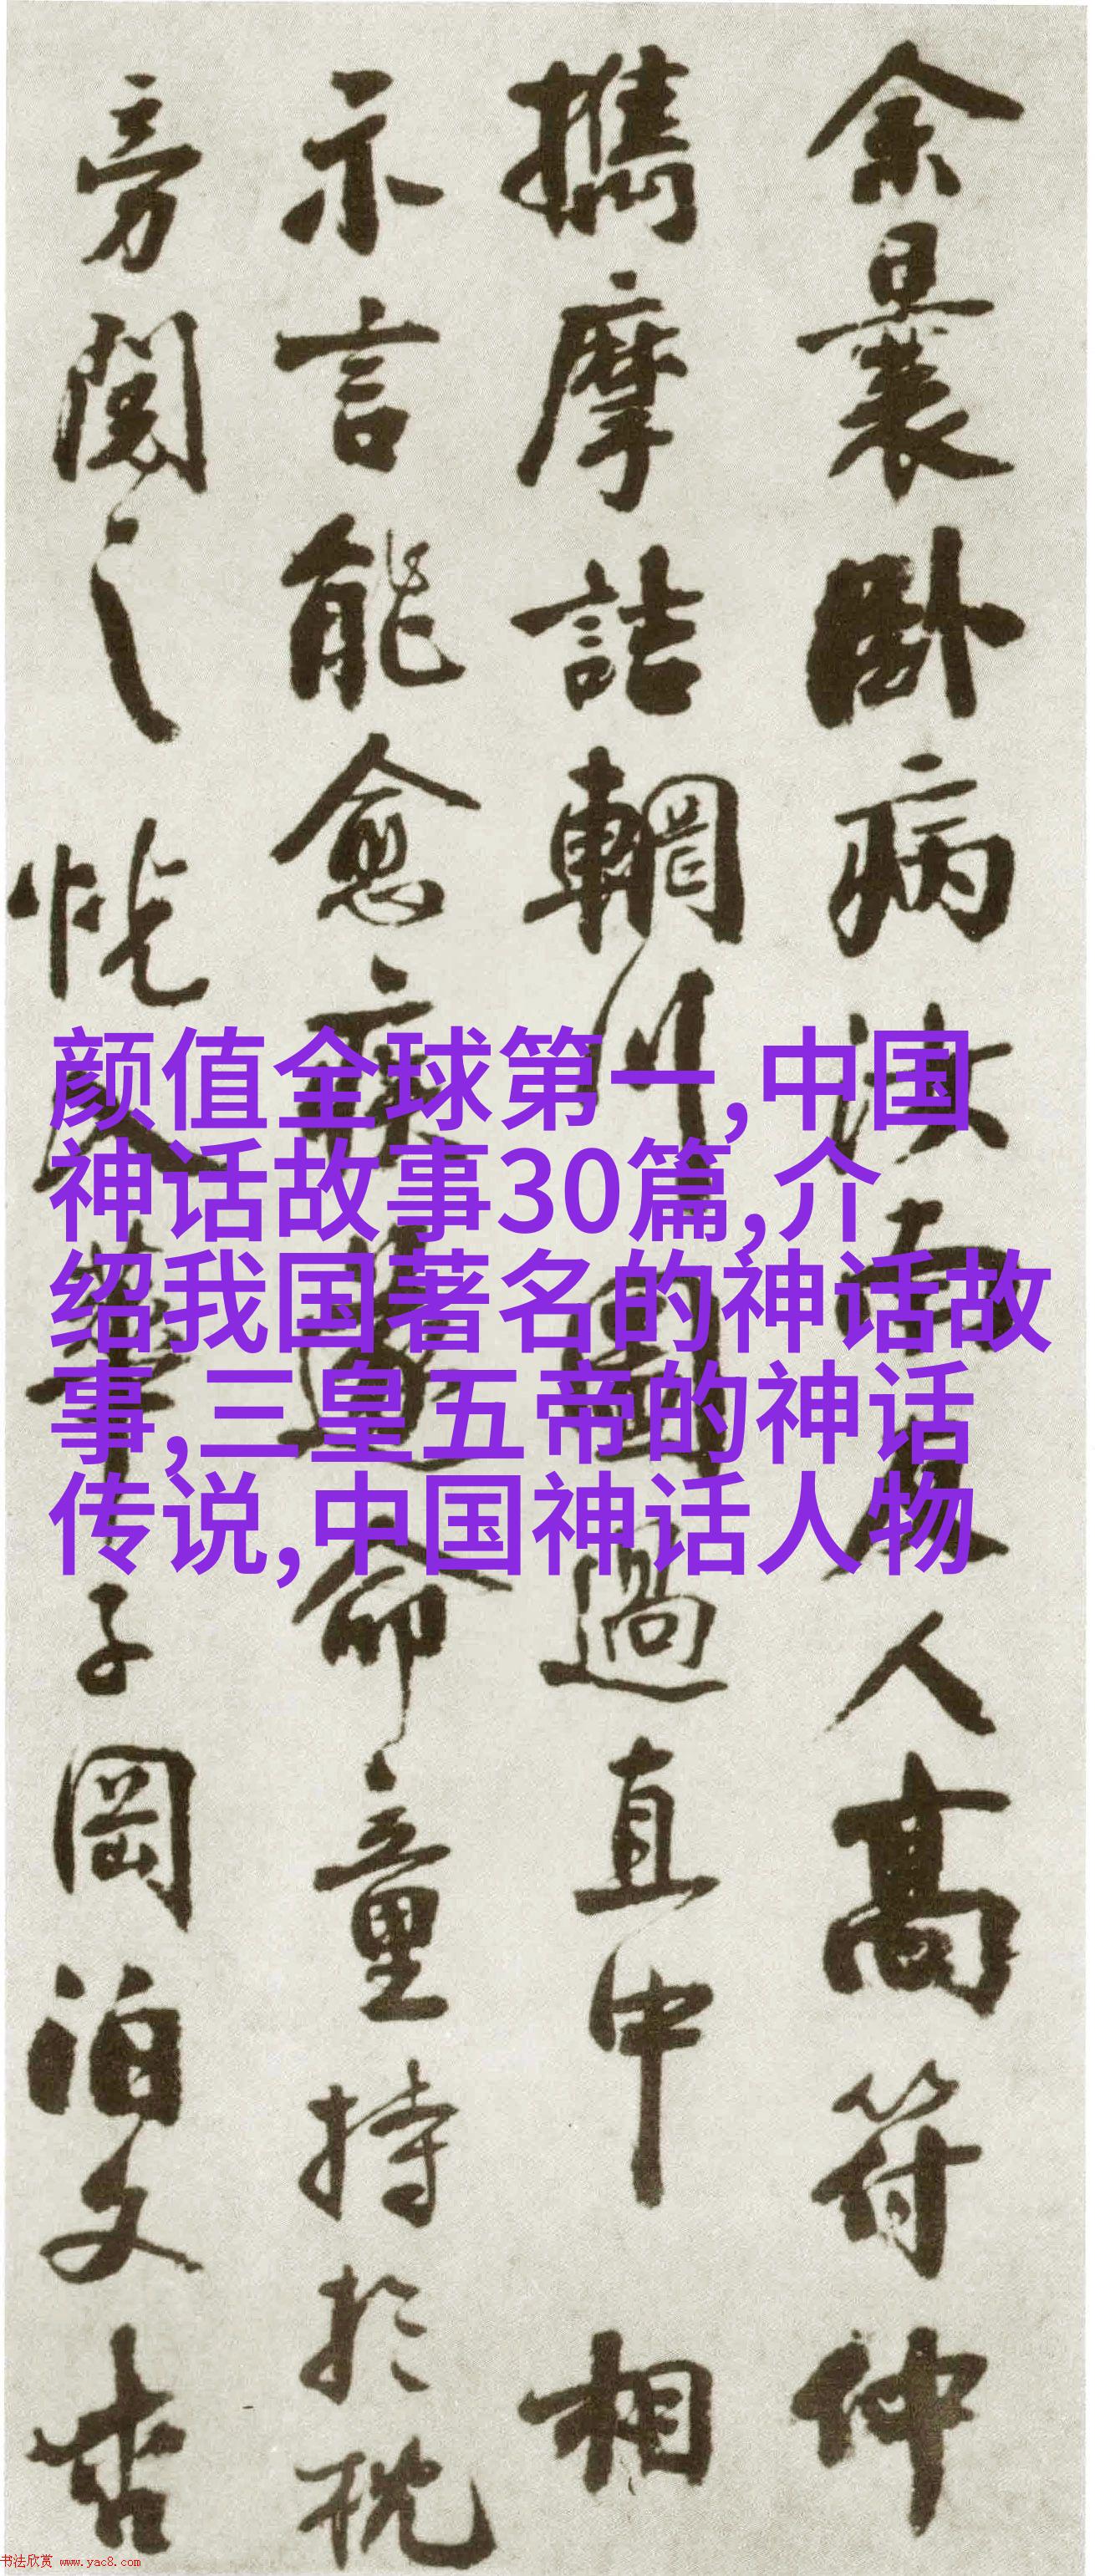 余曩卧病汝南友人高符仲
攜摩詰輞川圖過直中相
示言能愈疾遂命童持於枕
旁閱之恍入華子岡泊文杏
颜值全球第一,中国
神话故事30篇,介
绍我国著名的神话故
事,三皇五帝的神话
传说,中国神话人物
书法欣赏 www.yac8.com